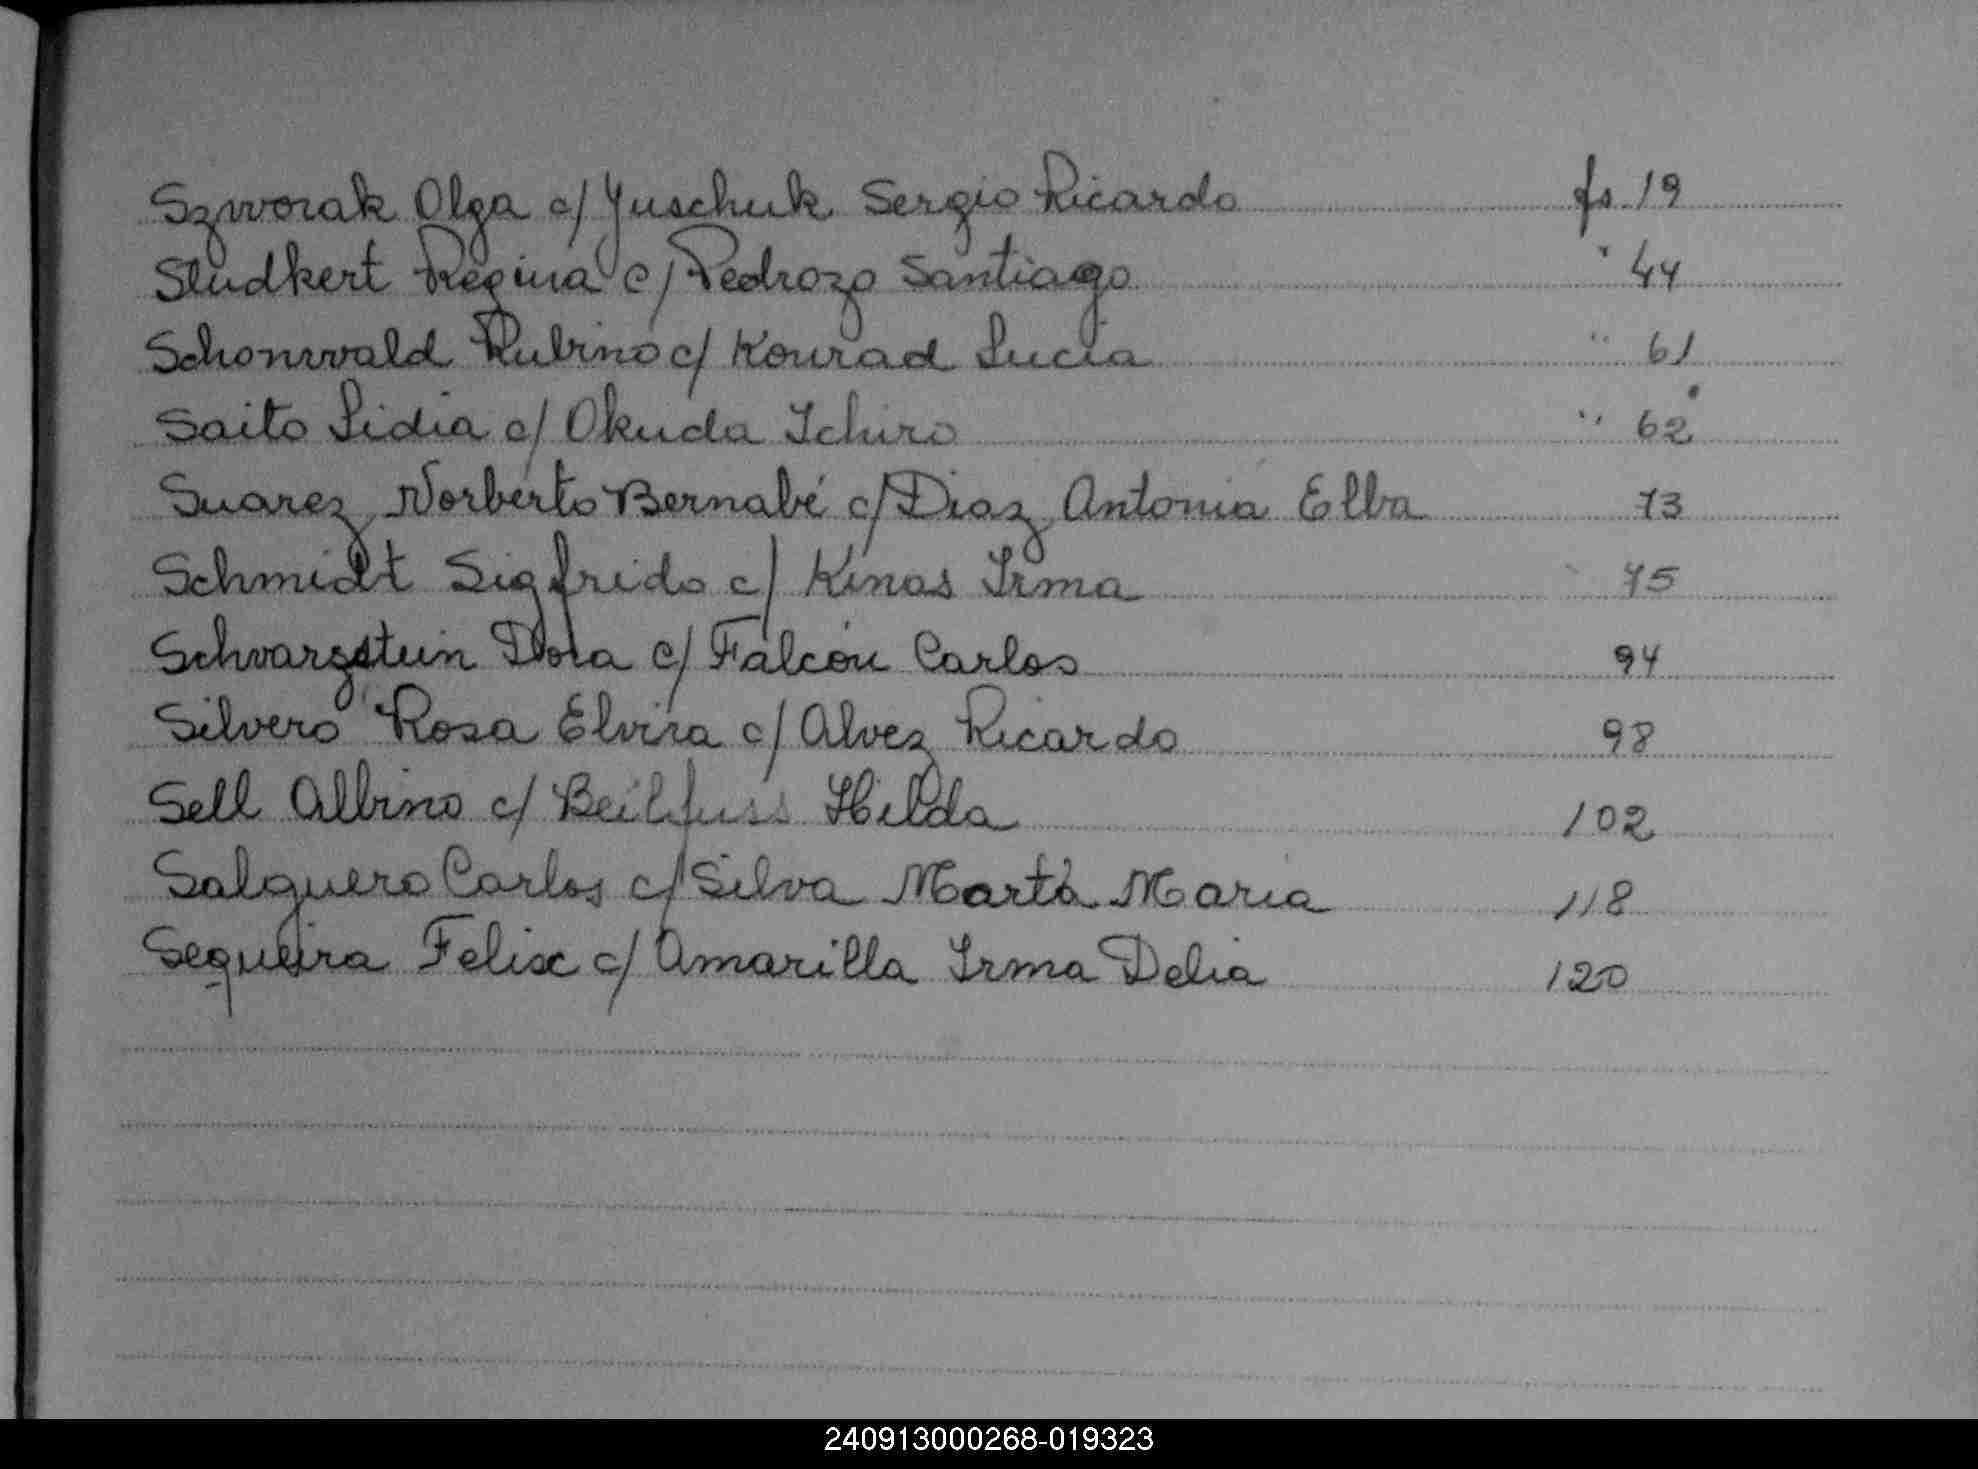 Szworak Olga c/ Yuschuk Sergio Ricardo fs. 19
Sludkert Regina c/ Pedrozo Santiago " 44
Schonwald Rubino c/ Konrad Lucia " 61
Saito Lidia c/ Okuda Ichiro " 62
Suarez Norberto Bernabé c/ Diaz Antonia Elba 73
Schmidt Sigfrido c/ Kinas Irma " 75
Schvarzstein Dora c/ Falcón Carlos 94
Silvero Rosa Elvira c/ Alvez Ricardo 98
Sell Albino c/ Beilfuss Hilda 102
Salguero Carlos c/ Silva Marta Maria 118
Sequeira Felix c/ Amarilla Irma Delia 120
240913000268-019323